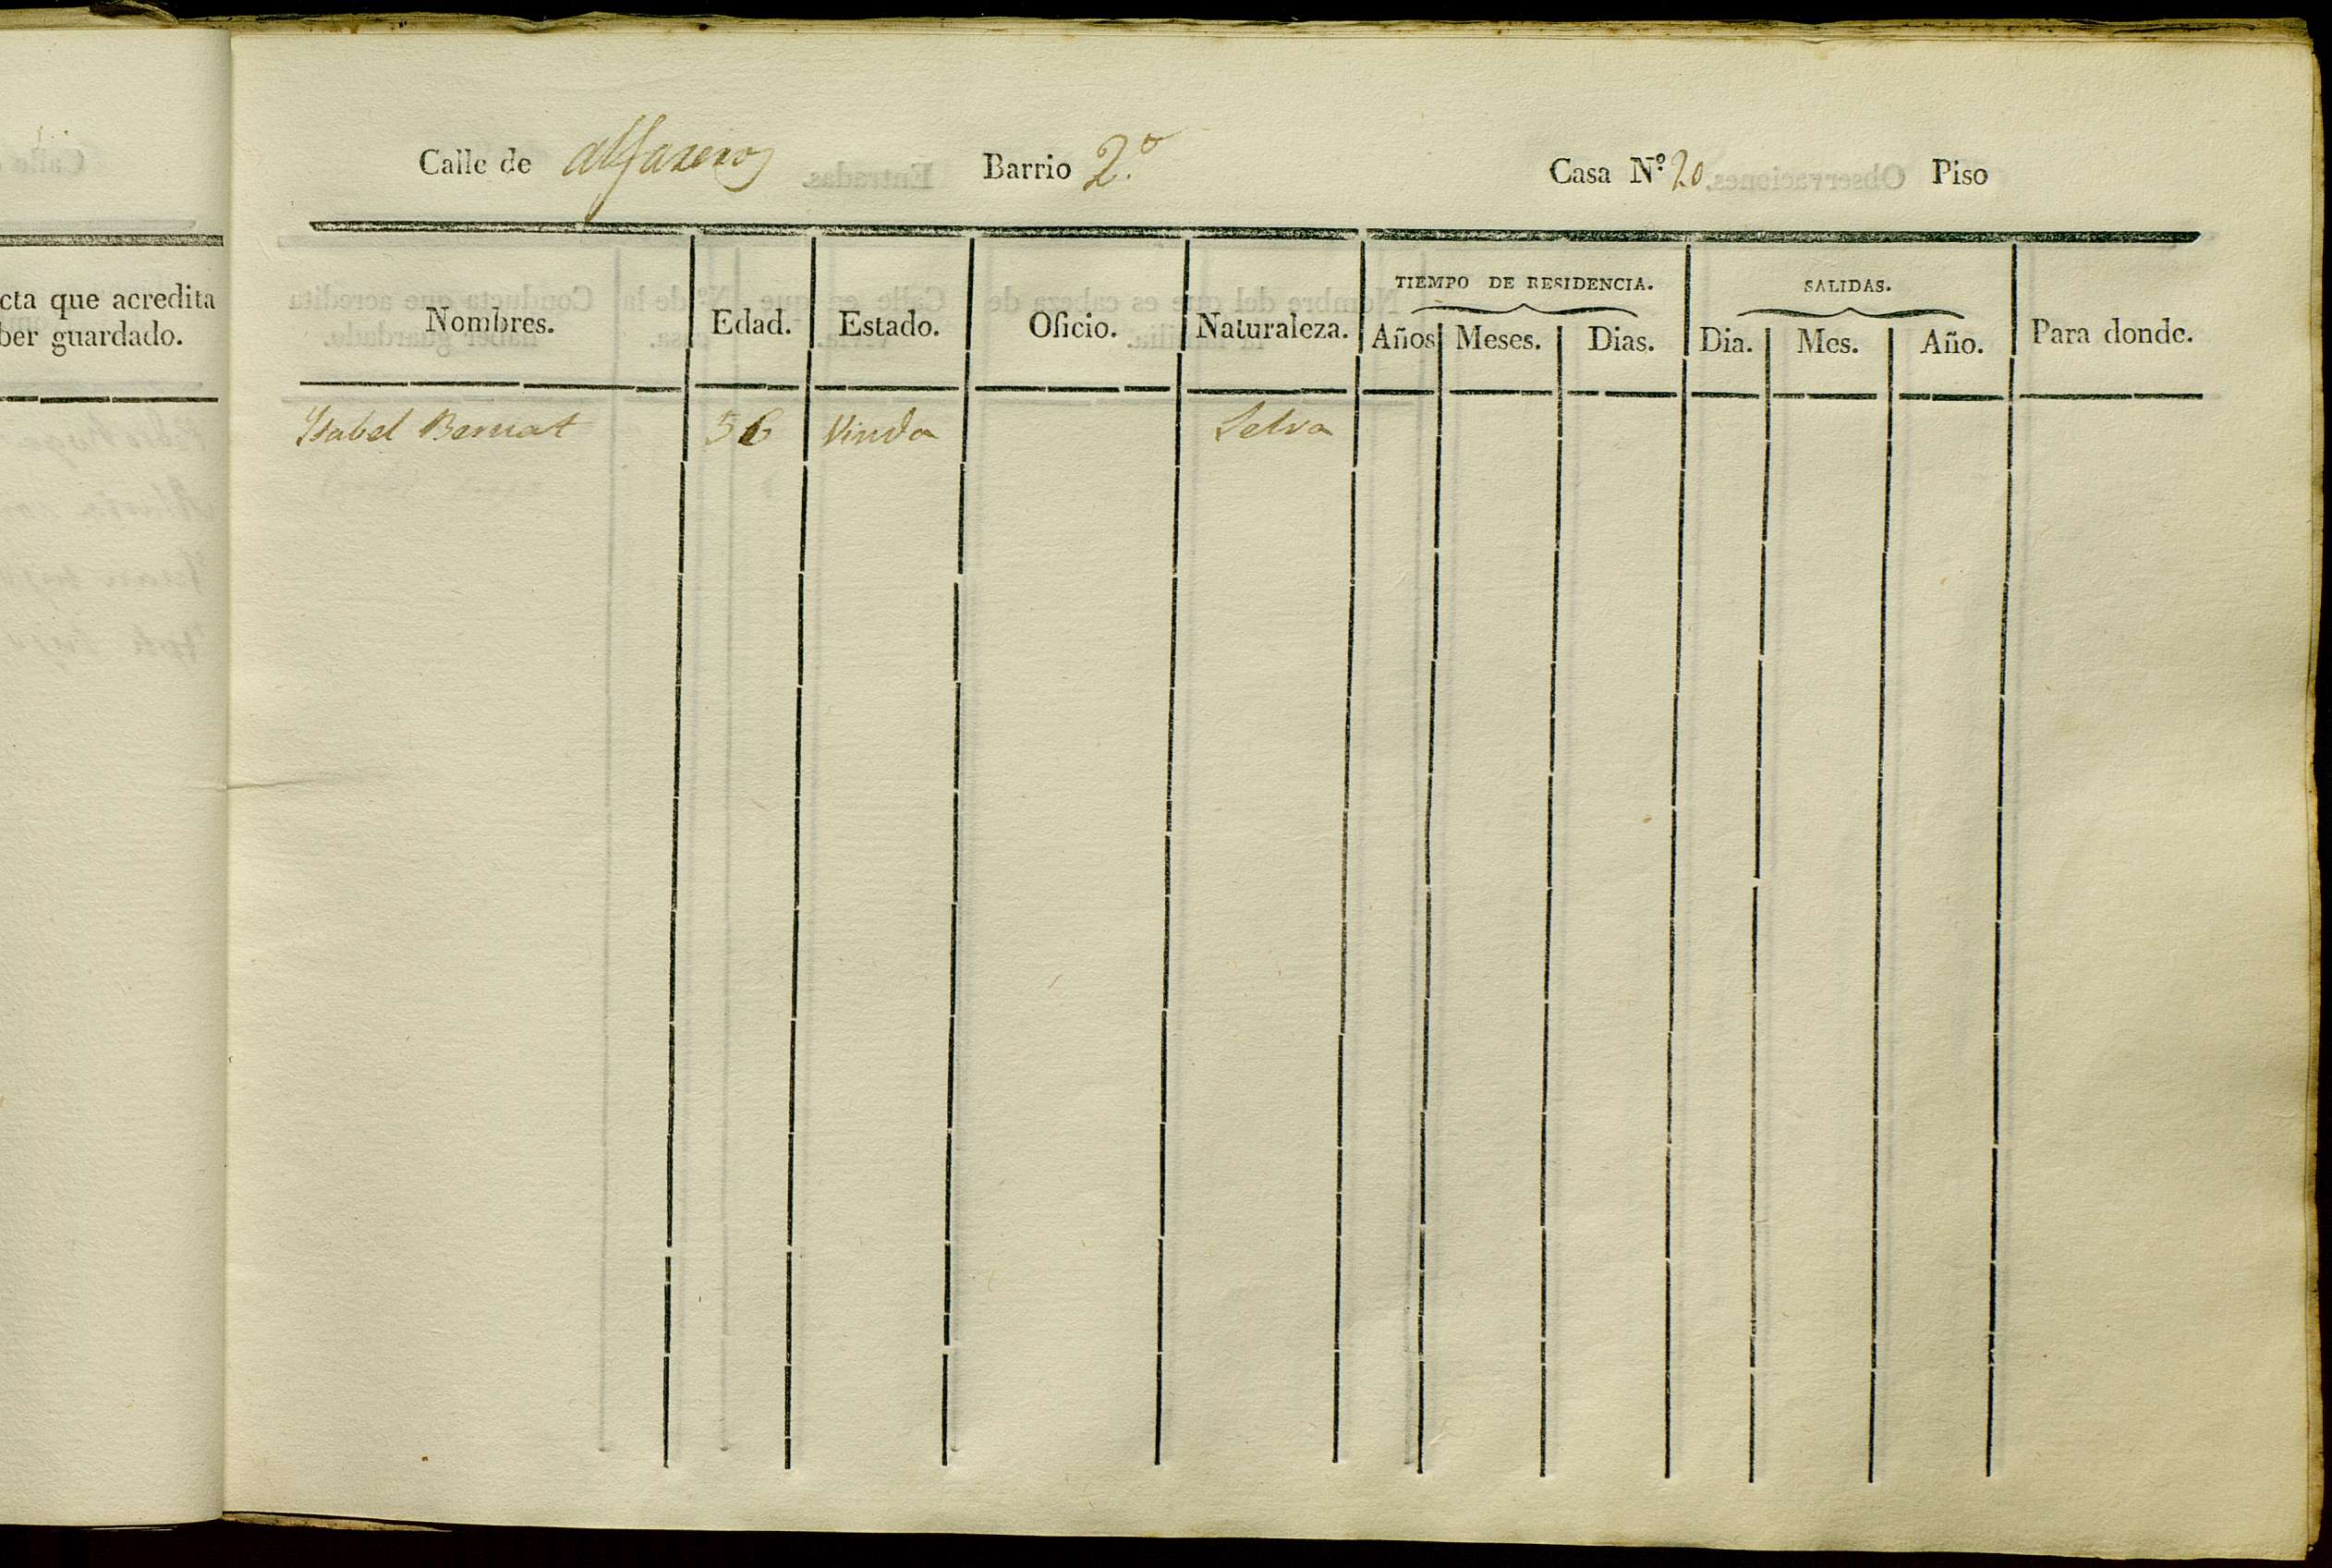 cta que acredita
ber guardado.
Calle de alfareros Barrio 2.º Casa N.º 20 Piso
TIEMPO DE RESIDENCIA. SALIDAS.
Nombres. Edad. Estado. Oficio. Naturaleza. Años Meses. Dias. Dia. Mes. Año. Para donde.
Ysabel Bernat 56 Viuda Selva